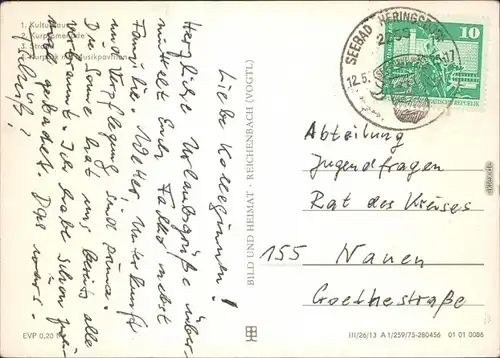 1. Kulturhaus
2. Kurpromenade
3. Strand
4. Kurpark mit Musikpavillon
Liebe Kolleginnen!
Herzliche Urlaubsgrüße über-
mittelt Euch Falko nebst
Familie. Wetter, Unterkunft
und Verpflegung sind prima.
Die Sonne hat uns bereits alle
verbrannt. Ich habe schon frei
mal gebadet. Das wars.
Tschüß!
BILD UND HEIMAT · REICHENBACH (VOGTL)
SEEBAD HERINGSDORF
2255
12.5.
10
DEUTSCHE DEMOKRATISCHE REPUBLIK
Abteilung
Jugendfragen
Rat des Kreises
155 Nauen
Goethestraße
EVP 0,20 M
III/26/13 A 1/259/75-280456 01 01 0086